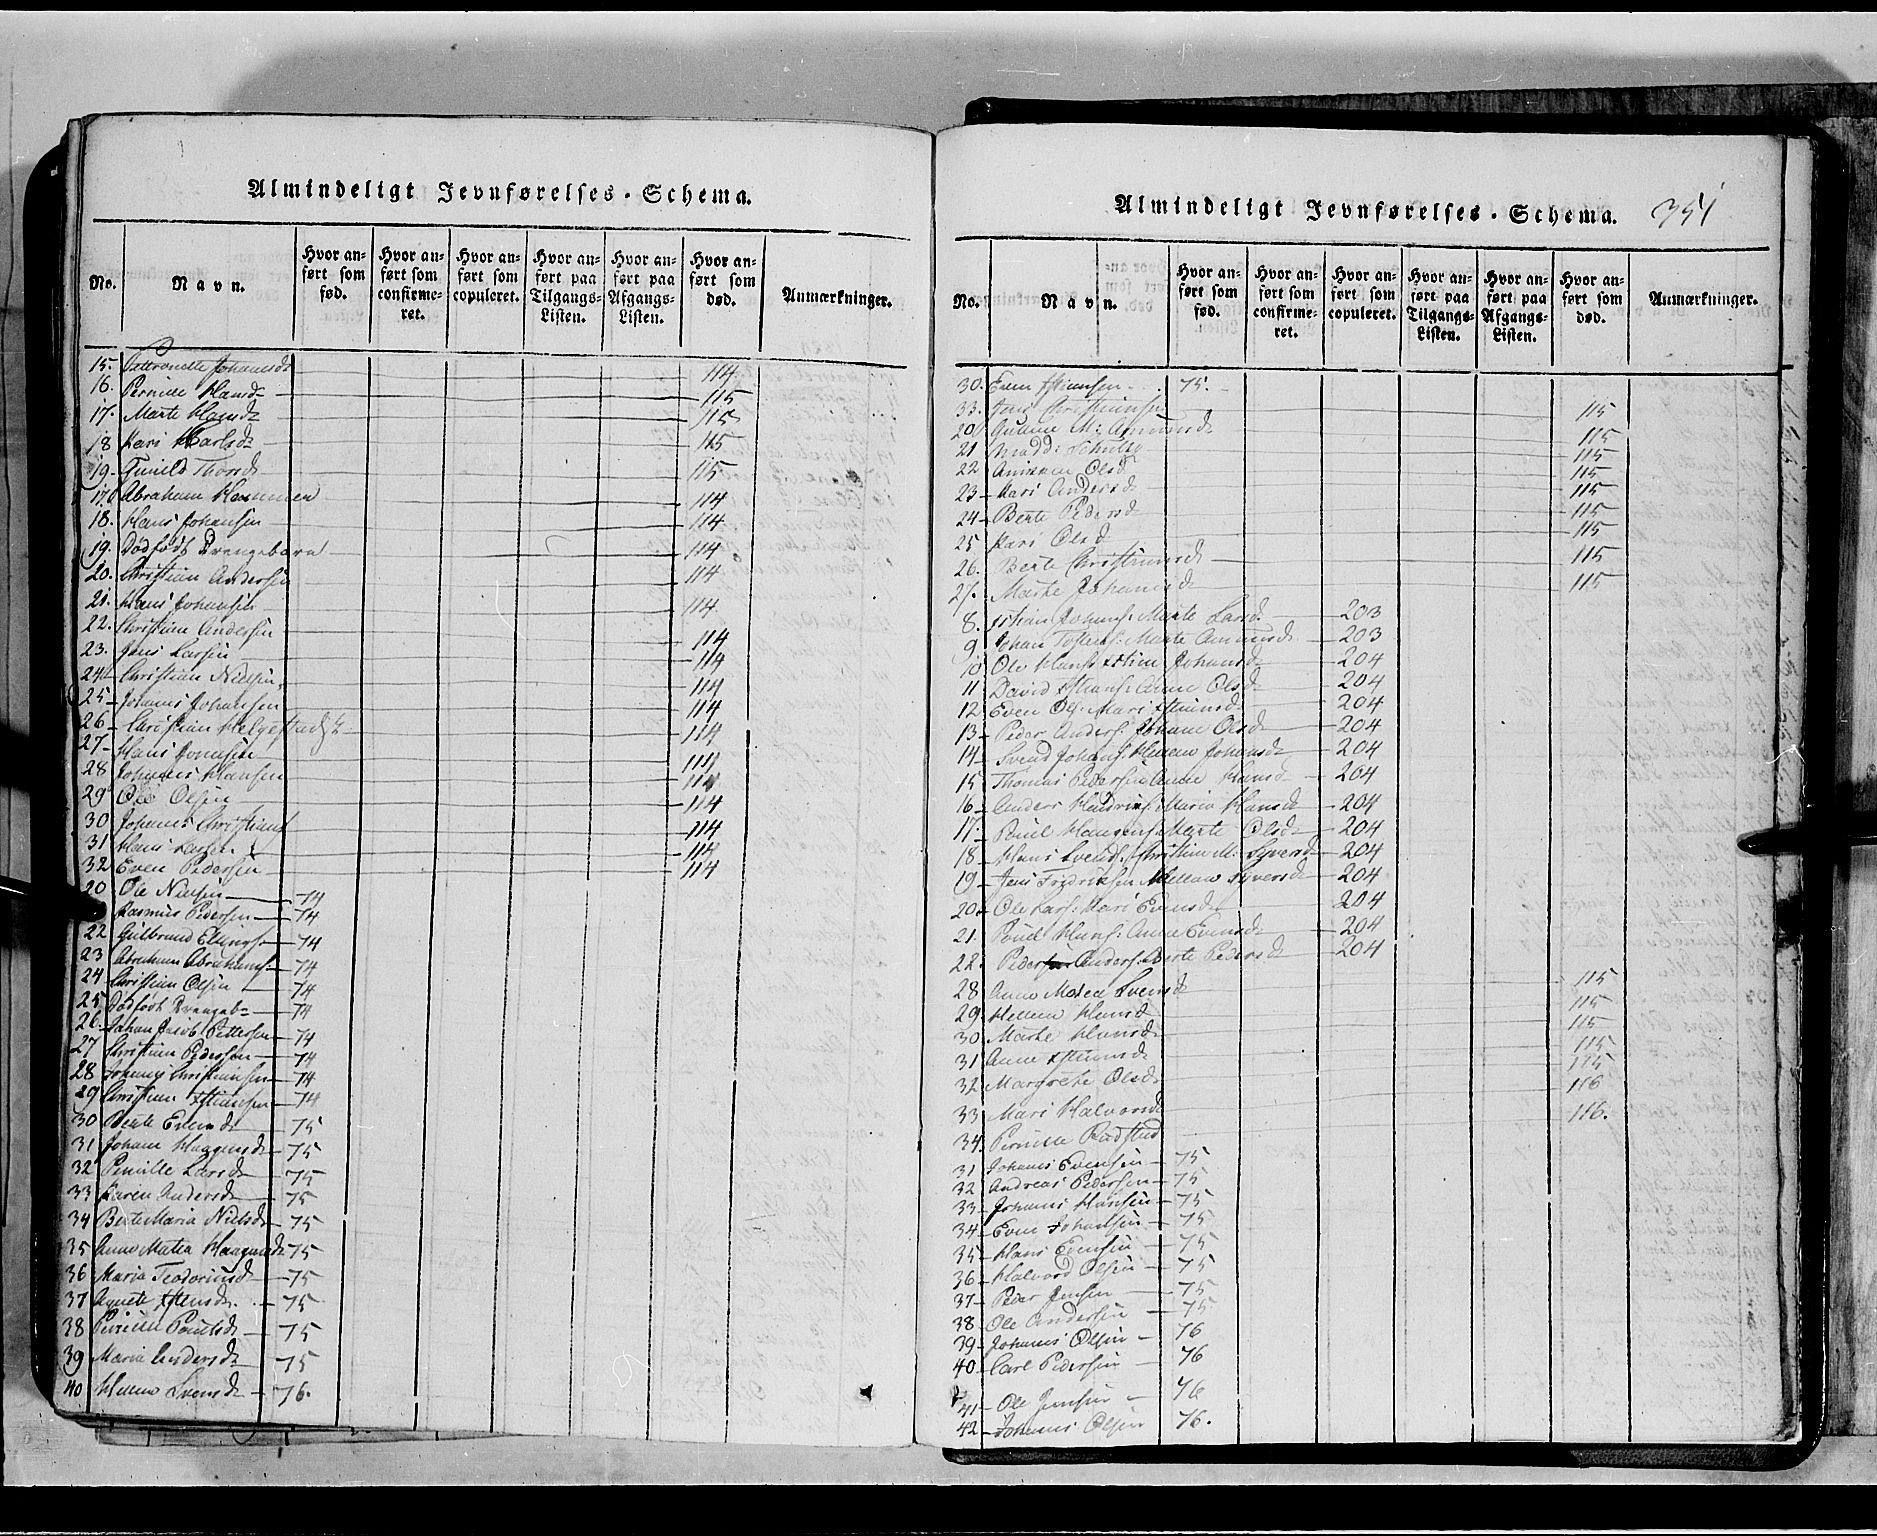 Almindeligt Jevnførelses-Schema.
No.
Navn.
Hvor anført som fød.
Hvor anført som confirmeret.
Hvor anført som copuleret.
Hvor anført paa Tilgangs-Listen.
Hvor anført paa Afgangs-Listen.
Hvor anført som død.
Anmærkninger.
15. Petronelle Johansd 114
16. Pernille Hansd 115
17. Marte Hansd 115
18 Kari Karlsd 115
19. Gunild Thorsd 115
17. Abraham 114
18. Hans Johansen 114
19. Dødfødt Drengebarn 114
20. Christian Andersen 114
21. Hans Johansen 114
22. Christian Andersen 114
23. Jens Larsen 114
24. Christian Nielsen 114
25 Johannes Johansen 114
26 Christian Helgestad 114
27 Hans Jonassen 114
28 Johannes Hansen 114
29 Ole Olsen 114
30 Johannes Christians 114
31 Hans Larsen 114
32 Even Pedersen 114
20 Ole Nielsen 74
Rasmus Pedersen 74
22 Gulbrand Ellings 74
23 Abraham Abrahams 74
24 Christian Olsen 74
25 Dødfødt Drengeb 74
26. Johan Jacob Pettersen 74
27 Christian Pedersen 74
28 Johannes Christiansen 74
29 Christian 74
30 Berte Evensd 75
31 Johane Haagensd 75
32 Pernille Larsd 75
33 Karen Andersd 75
34 Berte Maria Nielsd 75
35 Anne Matea Haagensd 75
36 Maria Teodoriusd 75
37 Agnete 75
38 Pernille Poulsd 75
39 Maria Andersd 75
40 Hellene Svensd 76.
Almindeligt Jevnførelses-Schema. 351
No.
Navn.
Hvor anført som fød.
Hvor anført som confirmeret.
Hvor anført som copuleret.
Hvor anført paa Tilgangs-Listen.
Hvor anført paa Afgangs-Listen.
Hvor anført som død.
Anmærkninger.
30. Even 75.
33. Jens Christiansen 115
20 M: Amundsd 115
21 Madd: Schultz 115
22 Olsd 115
23 Kari Andersd 115
24 Berte Pedersd 115
25 Kari Olsd 115
26. Berte Christiansd 115
27. Marte Johannesd 115
8. Johans: Marte Larsd 203
9 Johan Tostens: Marte Amundsd 203
10 Ole Hans: Johansd 204
11 David Anne Olsd 204
12 Even Ols: Mari 204
13 Peder Anders: Johane Olsd 204
14 Svend Johans: Hellene Johansd 204
15 Thomas Pedersen Anne Hansd 204
16 Anders Hendriks: Maria Hansd 204
17. Poul Haagens: Marte Olsd 204
18 Hans Svends: Christine M: Syversd 204
19 Jens Fredriksen Hellene Syversd 204
20. Ole Lars: Mari Evensd 204
21. Poul Hans: Anne Evensd 204
22. Peder Anders: Berte Pedersd 204
28 Anne Matea Svensd 115
29 Hellene Hansd 115
30 Marte Hansd 115
31 Anne 115
32 Margrete Olsd 115
33 Mari Halvorsd 116
34. Pernille Rudstad 116.
31 Johannes Evensen 75
32 Andreas Pedersen 75
33 Johannes Hansen 75
34 Even Johansen 75
35 Hans Evensen 75
36 Halvord Olsen 75
37 Peder Jensen 75
38 Ole Andersen 75
39 Johannes Olsen 76
40 Carl Pedersen 76
41 Ole Jensen 76
42 Johannes Olsen 76.